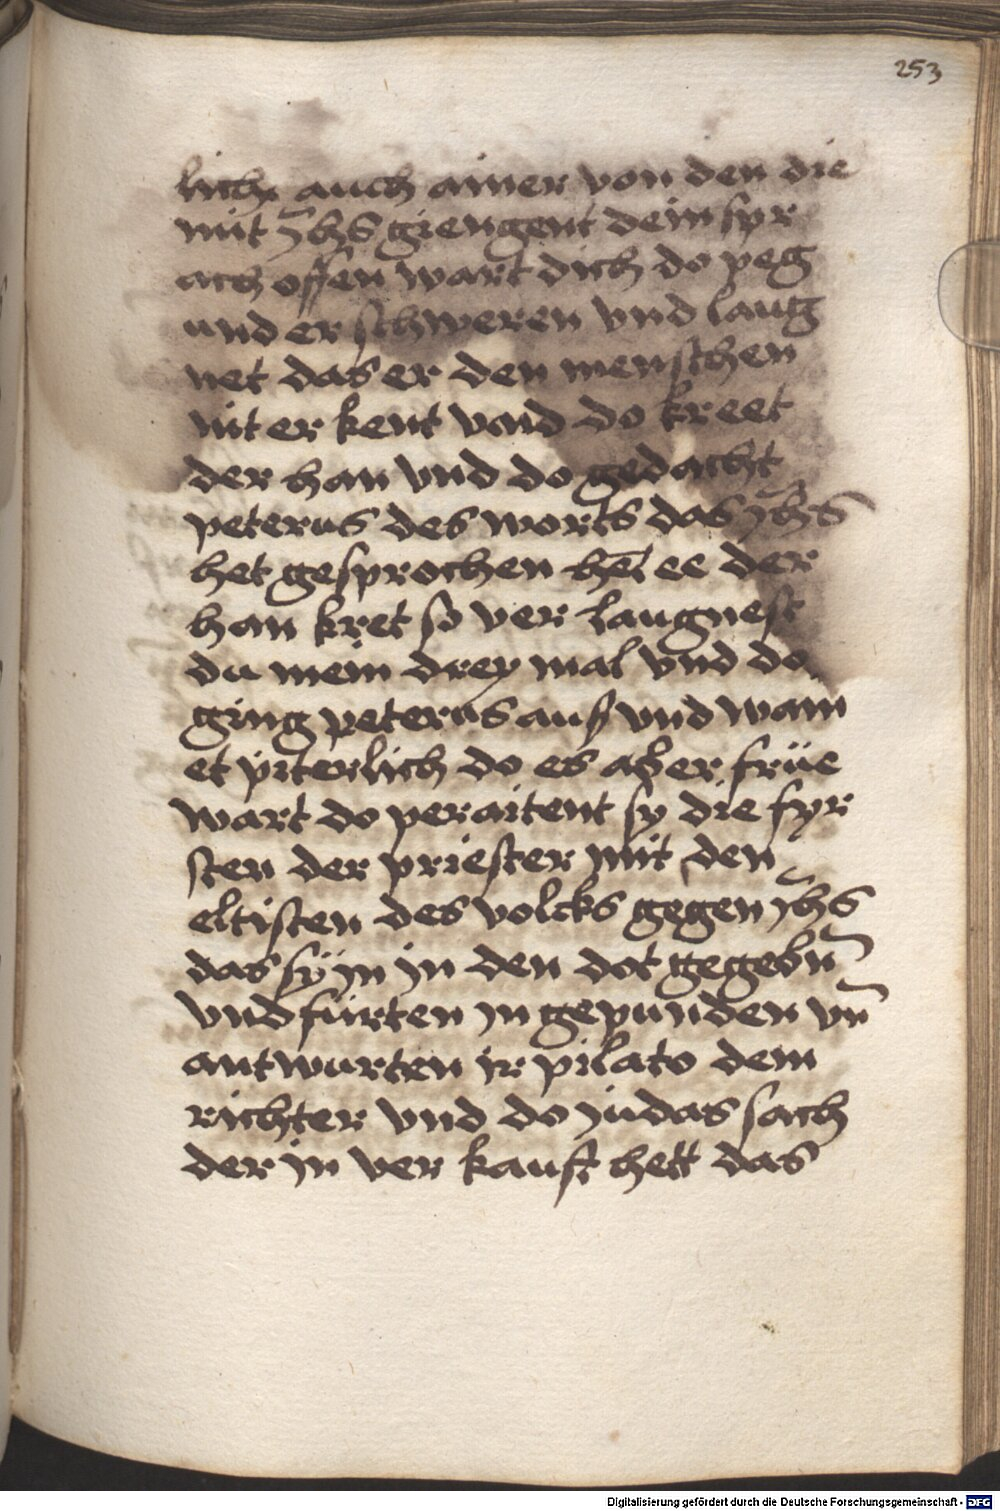 253
lich auch ainer von den die
mit jhs giengent dein spr
ach offen wart dich do peg
und er schweren vnd laug
net das er den menschen
nit er kent vnd do kreet
der han vnd do gedacht
peterus des worts das jhs
het gesprochen ee der
han kret so ver laugnest
du mein drey mal vnd do
ging peterus auß vnd wain
et piterlich do es aber früe
wart do peraitent sy die fyr
sten der priester mit den
eltisten des volcks gegen jhs
das sÿ jn jn den dot gegebn̄
vnd fürten jn gepunden vn̄
antwurten jr pilato dem
richter vnd do judas sach
der jn ver kauft hett das
Digitalisierung gefördert durch die Deutsche Forschungsgemeinschaft - DFG